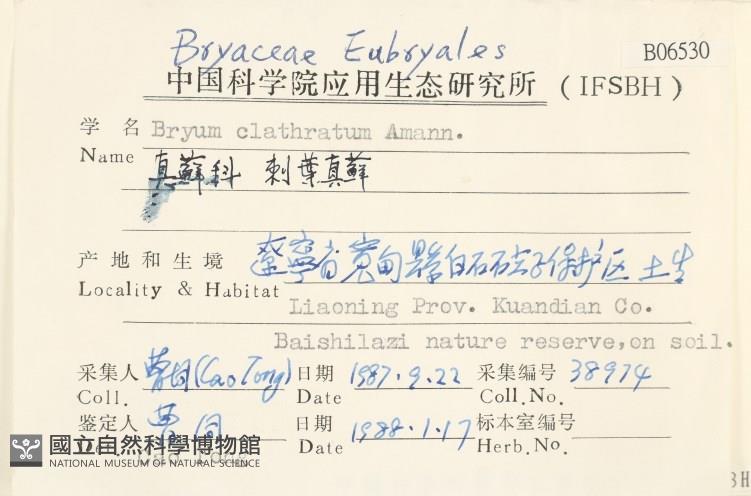 Bryaceae Eubryales
B06530
中国科学院应用生态研究所 (IFSBH)
学名 Bryum clathratum Amann.
Name 真蘚科 刺葉真蘚
产地和生境 遼寧省寬甸縣白石砬子保护区 土生
Locality & Habitat Liaoning Prov. Kuandian Co.
Baishilazi nature reserve, on soil.
采集人 曹同(Cao Tong) 日期 1987.9.22 采集编号 38974
Coll. Date Coll.No.
鉴定人 曹同 日期 1988.1.17 标本室编号
Cao Tong Date Herb.No.
國立自然科學博物館
NATIONAL MUSEUM OF NATURAL SCIENCE